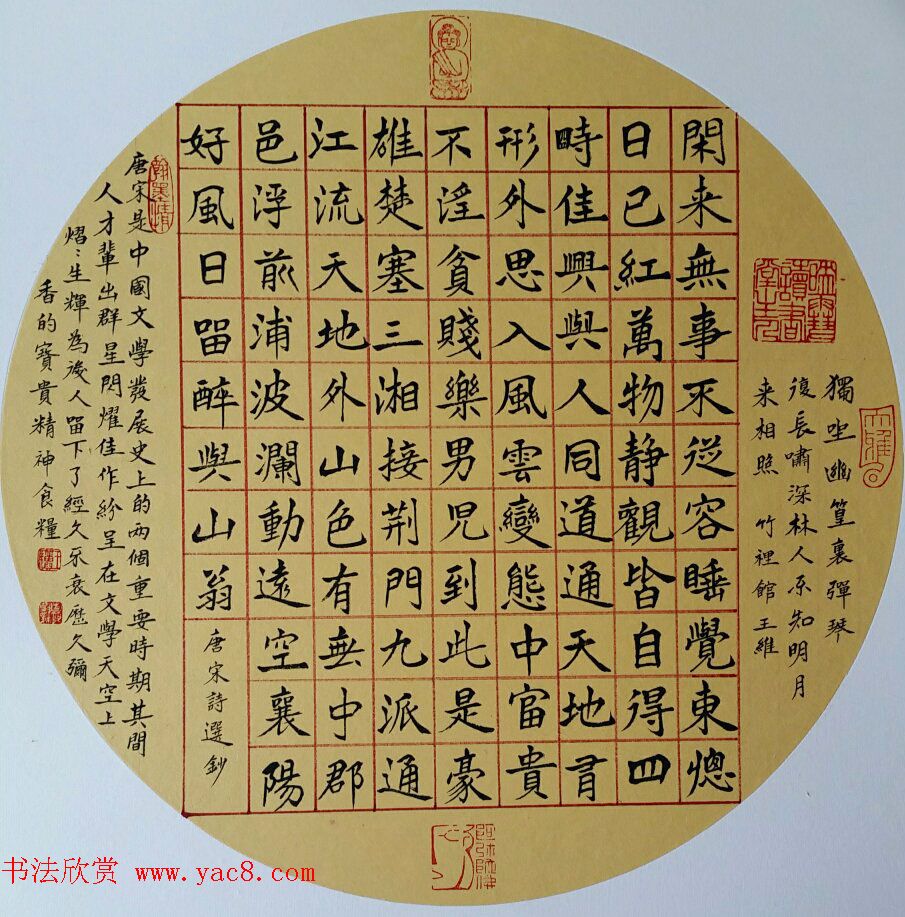 獨坐幽篁裏彈琴
復長嘯深林人不知明月
来相照 竹裡館王維
閑来無事不從容睡覺東窓
日已紅萬物静觀皆自得四
時佳興與人同道通天地有
形外思入風雲變態中富貴
不淫貧賤樂男兒到此是豪
雄楚塞三湘接荆門九派通
江流天地外山色有無中郡
邑浮前浦波瀾動遠空襄陽
好風日留醉與山翁
唐宋詩選鈔
翰墨情
唐宋是中國文學發展史上的两個重要時期其間
人才輩出群星閃耀佳作紛呈在文學天空上
熠:生輝為後人留下了經久不衰歷久彌
香的寶貴精神食糧
书法欣赏 www.yac8.com